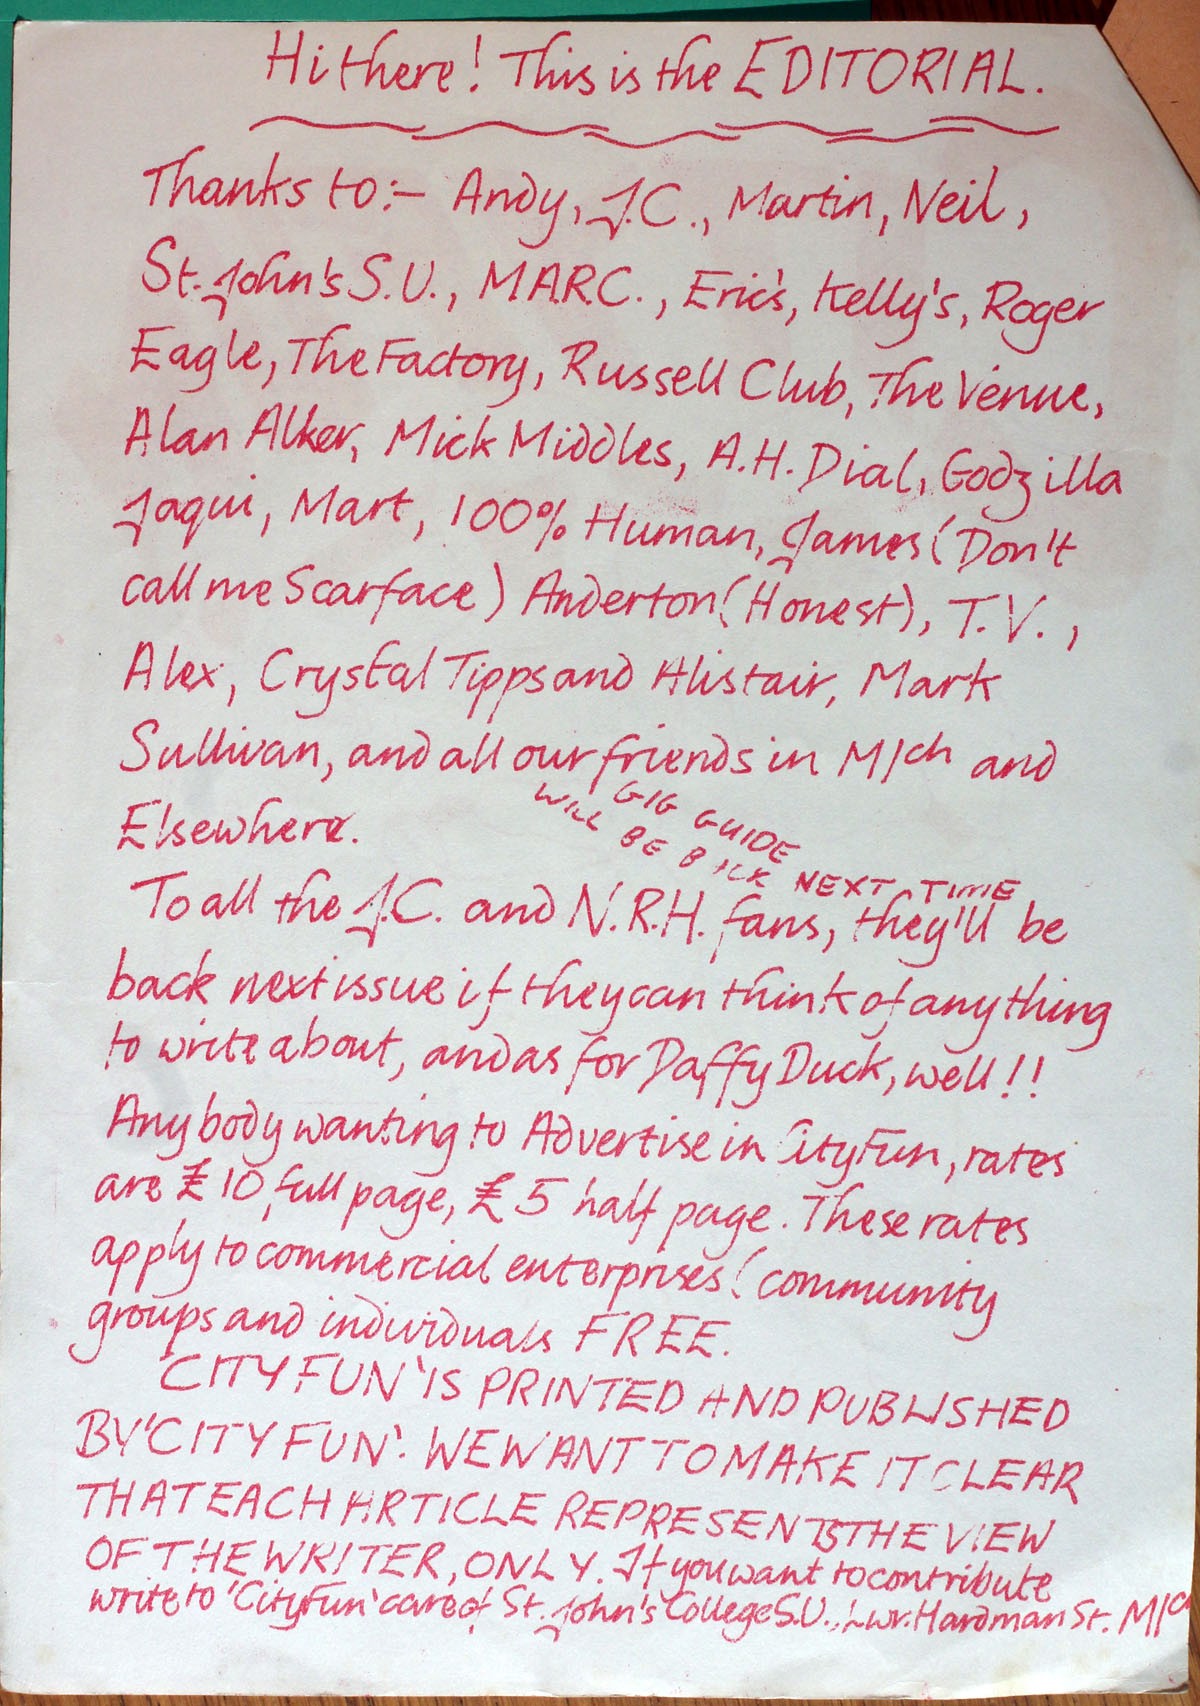 Hi there! This is the EDITORIAL.
Thanks to:- Andy, J.C., Martin, Neil,
St. John's S.U., M.A.R.C., Eric's, Kelly's, Roger
Eagle, The Factory, Russell Club, The Venue,
Alan Alker, Mick Middles, A.H. Dial, Godzilla
Jaqui, Mart, 100% Human, James (Don't
call me Scarface) Anderton (Honest), T.V.,
Alex, Crystal Tipps and Alistair, Mark
Sullivan, and all our friends in M/ch and
Elsewhere.
GIG GUIDE
WILL BE BACK NEXT TIME
To all the J.C. and N.R.H. fans, they'll be
back next issue if they can think of anything
to write about, and as for Daffy Duck, well!!
Anybody wanting to Advertise in City Fun, rates
are £10 full page, £5 half page. These rates
apply to commercial enterprises (community
groups and individuals FREE.
'CITY FUN' IS PRINTED AND PUBLISHED
BY 'CITY FUN'. WE WANT TO MAKE IT CLEAR
THAT EACH ARTICLE REPRESENTS THE VIEW
OF THE WRITER, ONLY. If you want to contribute
write to 'City Fun' care of St. John's College S.U., Lwr. Hardman St. M/c